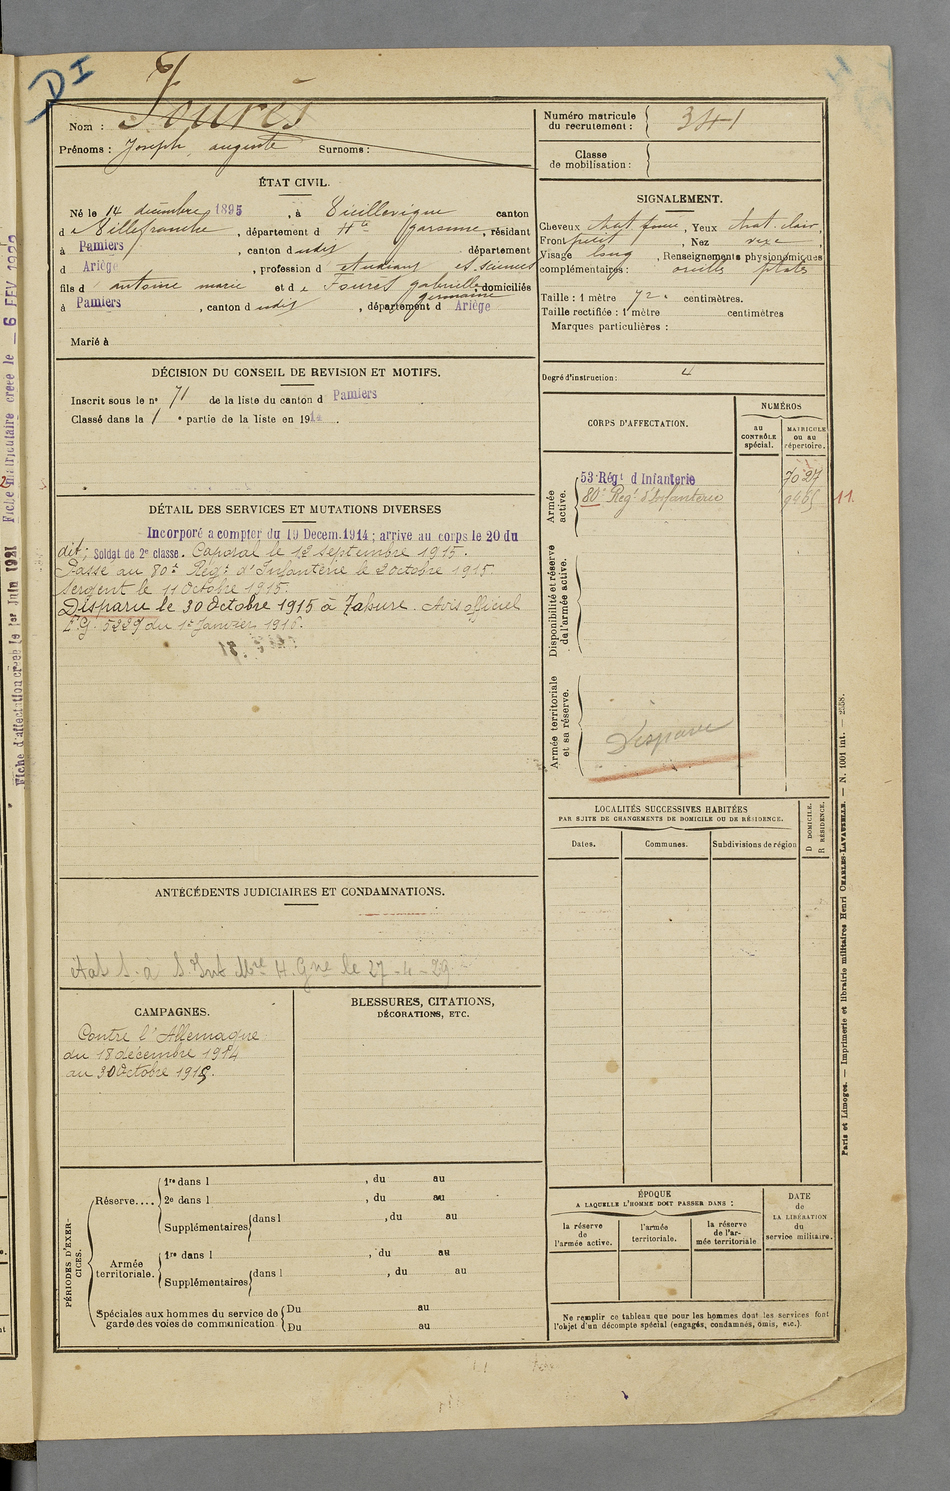 DI
Nom : Fourès
Prénoms : Joseph, auguste Surnoms :
Numéro matricule
du recrutement : 341
Classe
de mobilisation :
ÉTAT CIVIL.
Né le 14 décembre 1895, à Vieillevigne canton
de Villefranche, département d Hte Garonne, résidant
à Pamiers, canton dudit département
d Ariège, profession d étudiant ès sciences
fils d antoine marie et de Fourès gabrielle, domiciliés
germaine
à Pamiers, canton dudit, département d Ariège
Marié à
SIGNALEMENT.
Cheveux chat. foncé, Yeux chat. clair,
Front petit, Nez
Visage long, Renseignements physionomiques
complémentaires :
Taille : 1 mètre 72 centimètres.
Taille rectifiée : 1 mètre centimètres
Marques particulières :
Degré d'instruction : 4
DÉCISION DU CONSEIL DE REVISION ET MOTIFS.
Inscrit sous le nº 71 de la liste du canton d Pamiers
Classé dans la 1 e partie de la liste en 1914.
DÉTAIL DES SERVICES ET MUTATIONS DIVERSES
Incorporé a compter du 19 Decem.1914 ; arrive au corps le 20 du
dit ; Soldat de 2e classe. Caporal le 12 septembre 1915.
Passé au 80e Régt d'Infanterie le 2 octobre 1915.
Sergent le 11 octobre 1915.
Disparu le 30 Octobre 1915 à Tahure. Avis officiel
du 1er Janvier 1916.
CORPS D'AFFECTATION.
NUMÉROS
au
CONTRÔLE
spécial.
MATRICULE
ou au
répertoire.
Armée
active.
53 Régt d Infanterie 7027
80e Regt d'Infanterie 11
Disponibilité et réserve
de l'armée active.
Armée territoriale
et sa réserve.
Disparu
LOCALITÉS SUCCESSIVES HABITÉES
PAR SUITE DE CHANGEMENTS DE DOMICILE OU DE RÉSIDENCE.
Dates. Communes. Subdivisions de région
D DOMICILE.
R RÉSIDENCE.
ANTÉCÉDENTS JUDICIAIRES ET CONDAMNATIONS.
H. Gne le 27-4-29
CAMPAGNES.
Contre l'Allemagne
du 18 décembre 1914
au 30 Octobre 1915.
BLESSURES, CITATIONS,
DÉCORATIONS, ETC.
PÉRIODES D'EXER-
CICES.
Réserve....
1re dans l , du au
2e dans l , du au
Supplémentaires dans l , du au
Armée
territoriale.
1re dans l , du au
Supplémentaires dans l , du au
Spéciales aux hommes du service de
garde des voies de communication
Du au
Du au
ÉPOQUE
A LAQUELLE L'HOMME DOIT PASSER DANS :
la réserve
de
l'armée active.
l'armée
territoriale.
la réserve
de l'ar-
mée territoriale
DATE
de
LA LIBÉRATION
du
service militaire.
Ne remplir ce tableau que pour les hommes dont les services font
l'objet d'un décompte spécial (engagés, condamnés, omis, etc.).
Paris et Limoges. — Imprimerie et librairie militaires Henri CHARLES-LAVAUZELLE. — N. 1001 int. — 2558.
Fiche d'affectation créée le 1er Juin 1921
Fiche matriculaire créée le — 6 FEV 1922